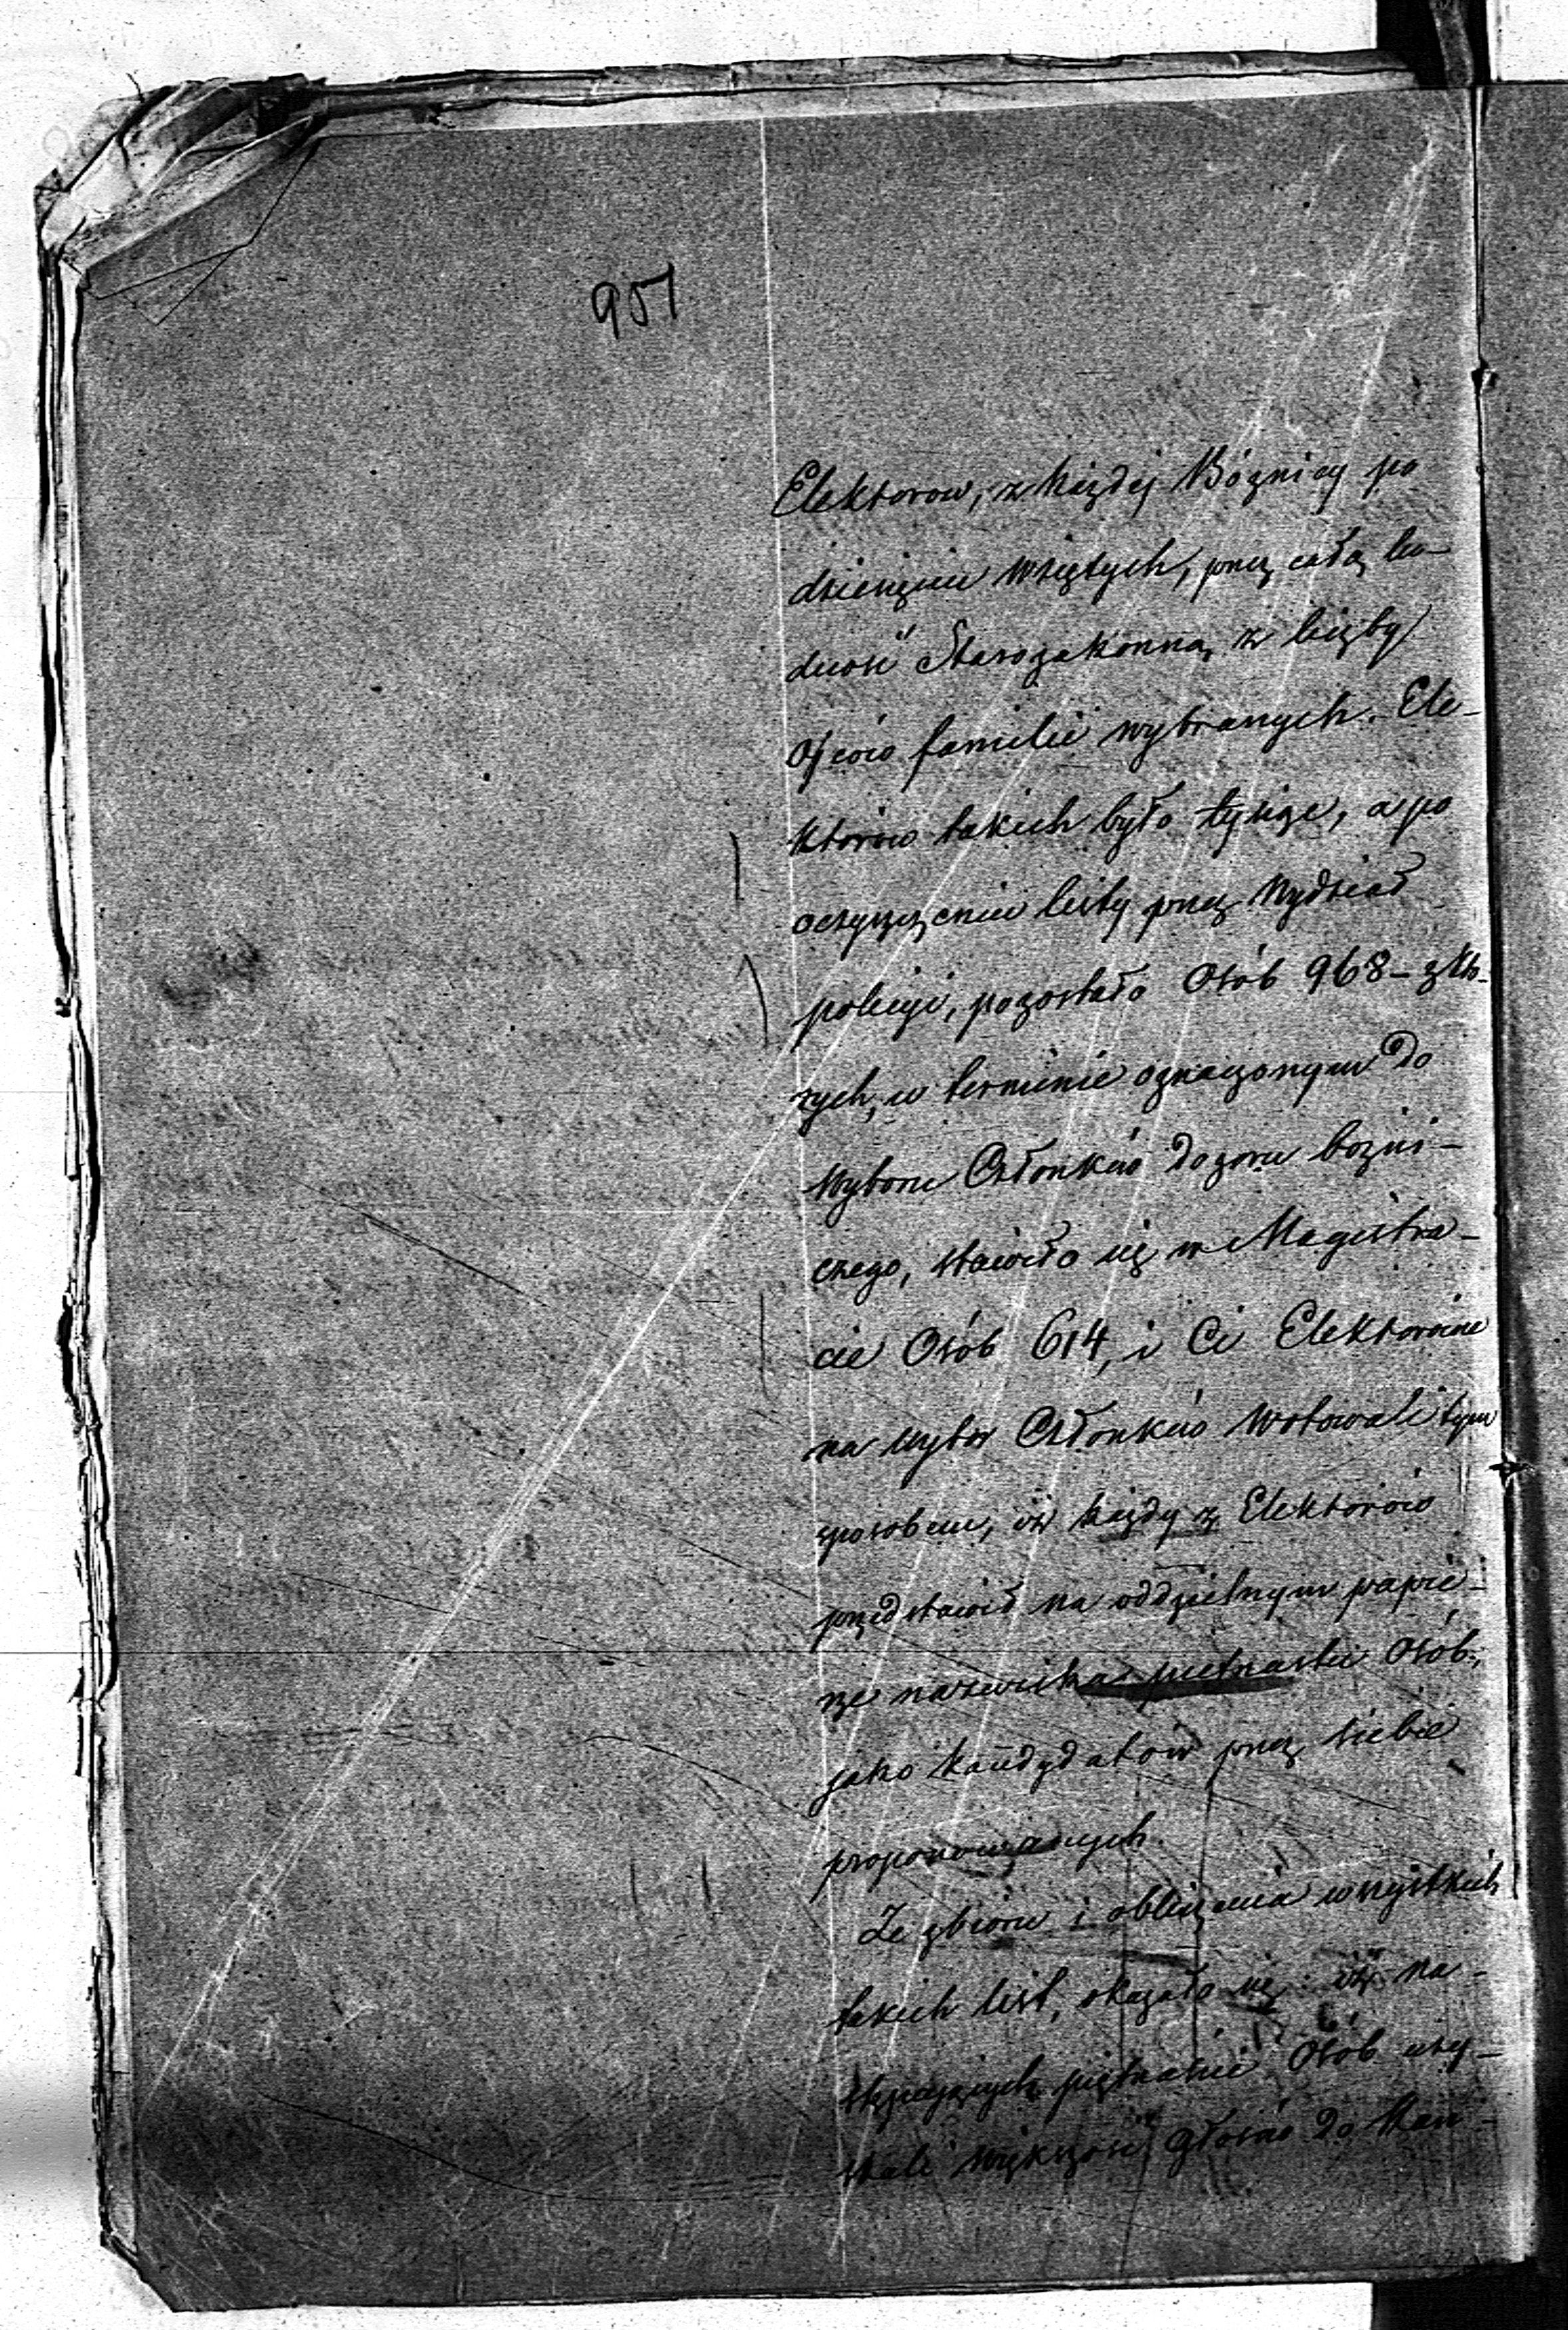 951
Elektorow, z każdej Bóżnicy po
dziesięciu wziętych, przez całą lu-
dność Starozakonną z liczby
Ojców familii wybranych. Ele-
ktorów takich było tysiąc, a po
oczyszczeniu listy przez Wydział
policyi, pozostało Osób 968 – z któ-
rych, w terminie oznaczonym do
wyboru Członków dozoru bożni-
cznego, stawiło się w Magistra-
cie Osób 614, i Ci Elektorowie
na wybór Członków wotowali tym
sposobem, iż każdy z Elektorów
przedstawił na oddzielnym papie-
rze nazwiska piętnastu Osób,
jako kandydatów przez siebie
proponowanych.
Ze zbioru i obliczenia wszystkich
takich list, okazało się: iż na-
stępujących piętnaście Osób uzy-
skali większość głosów do Kan-